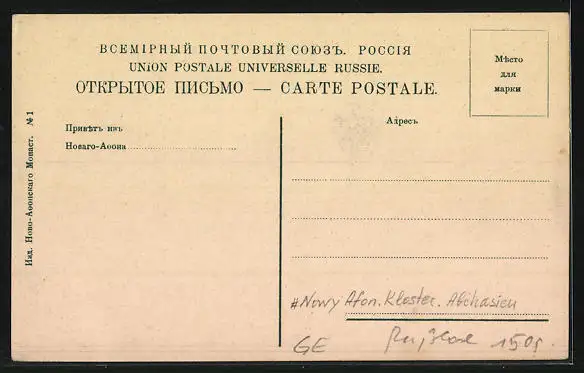 ВСЕМІРНЫЙ ПОЧТОВЫЙ СОЮЗЪ. РОССІЯ
UNION POSTALE UNIVERSELLE RUSSIE.
ОТКРЫТОЕ ПИСЬМО — CARTE POSTALE.
Мѣсто
для
марки
Привѣтъ изъ
Новаго-Аѳона
Адресъ
Изд. Ново-Аѳонскаго Монаст. №1
#Nowy Afon. Kloster. Abchasien
GE